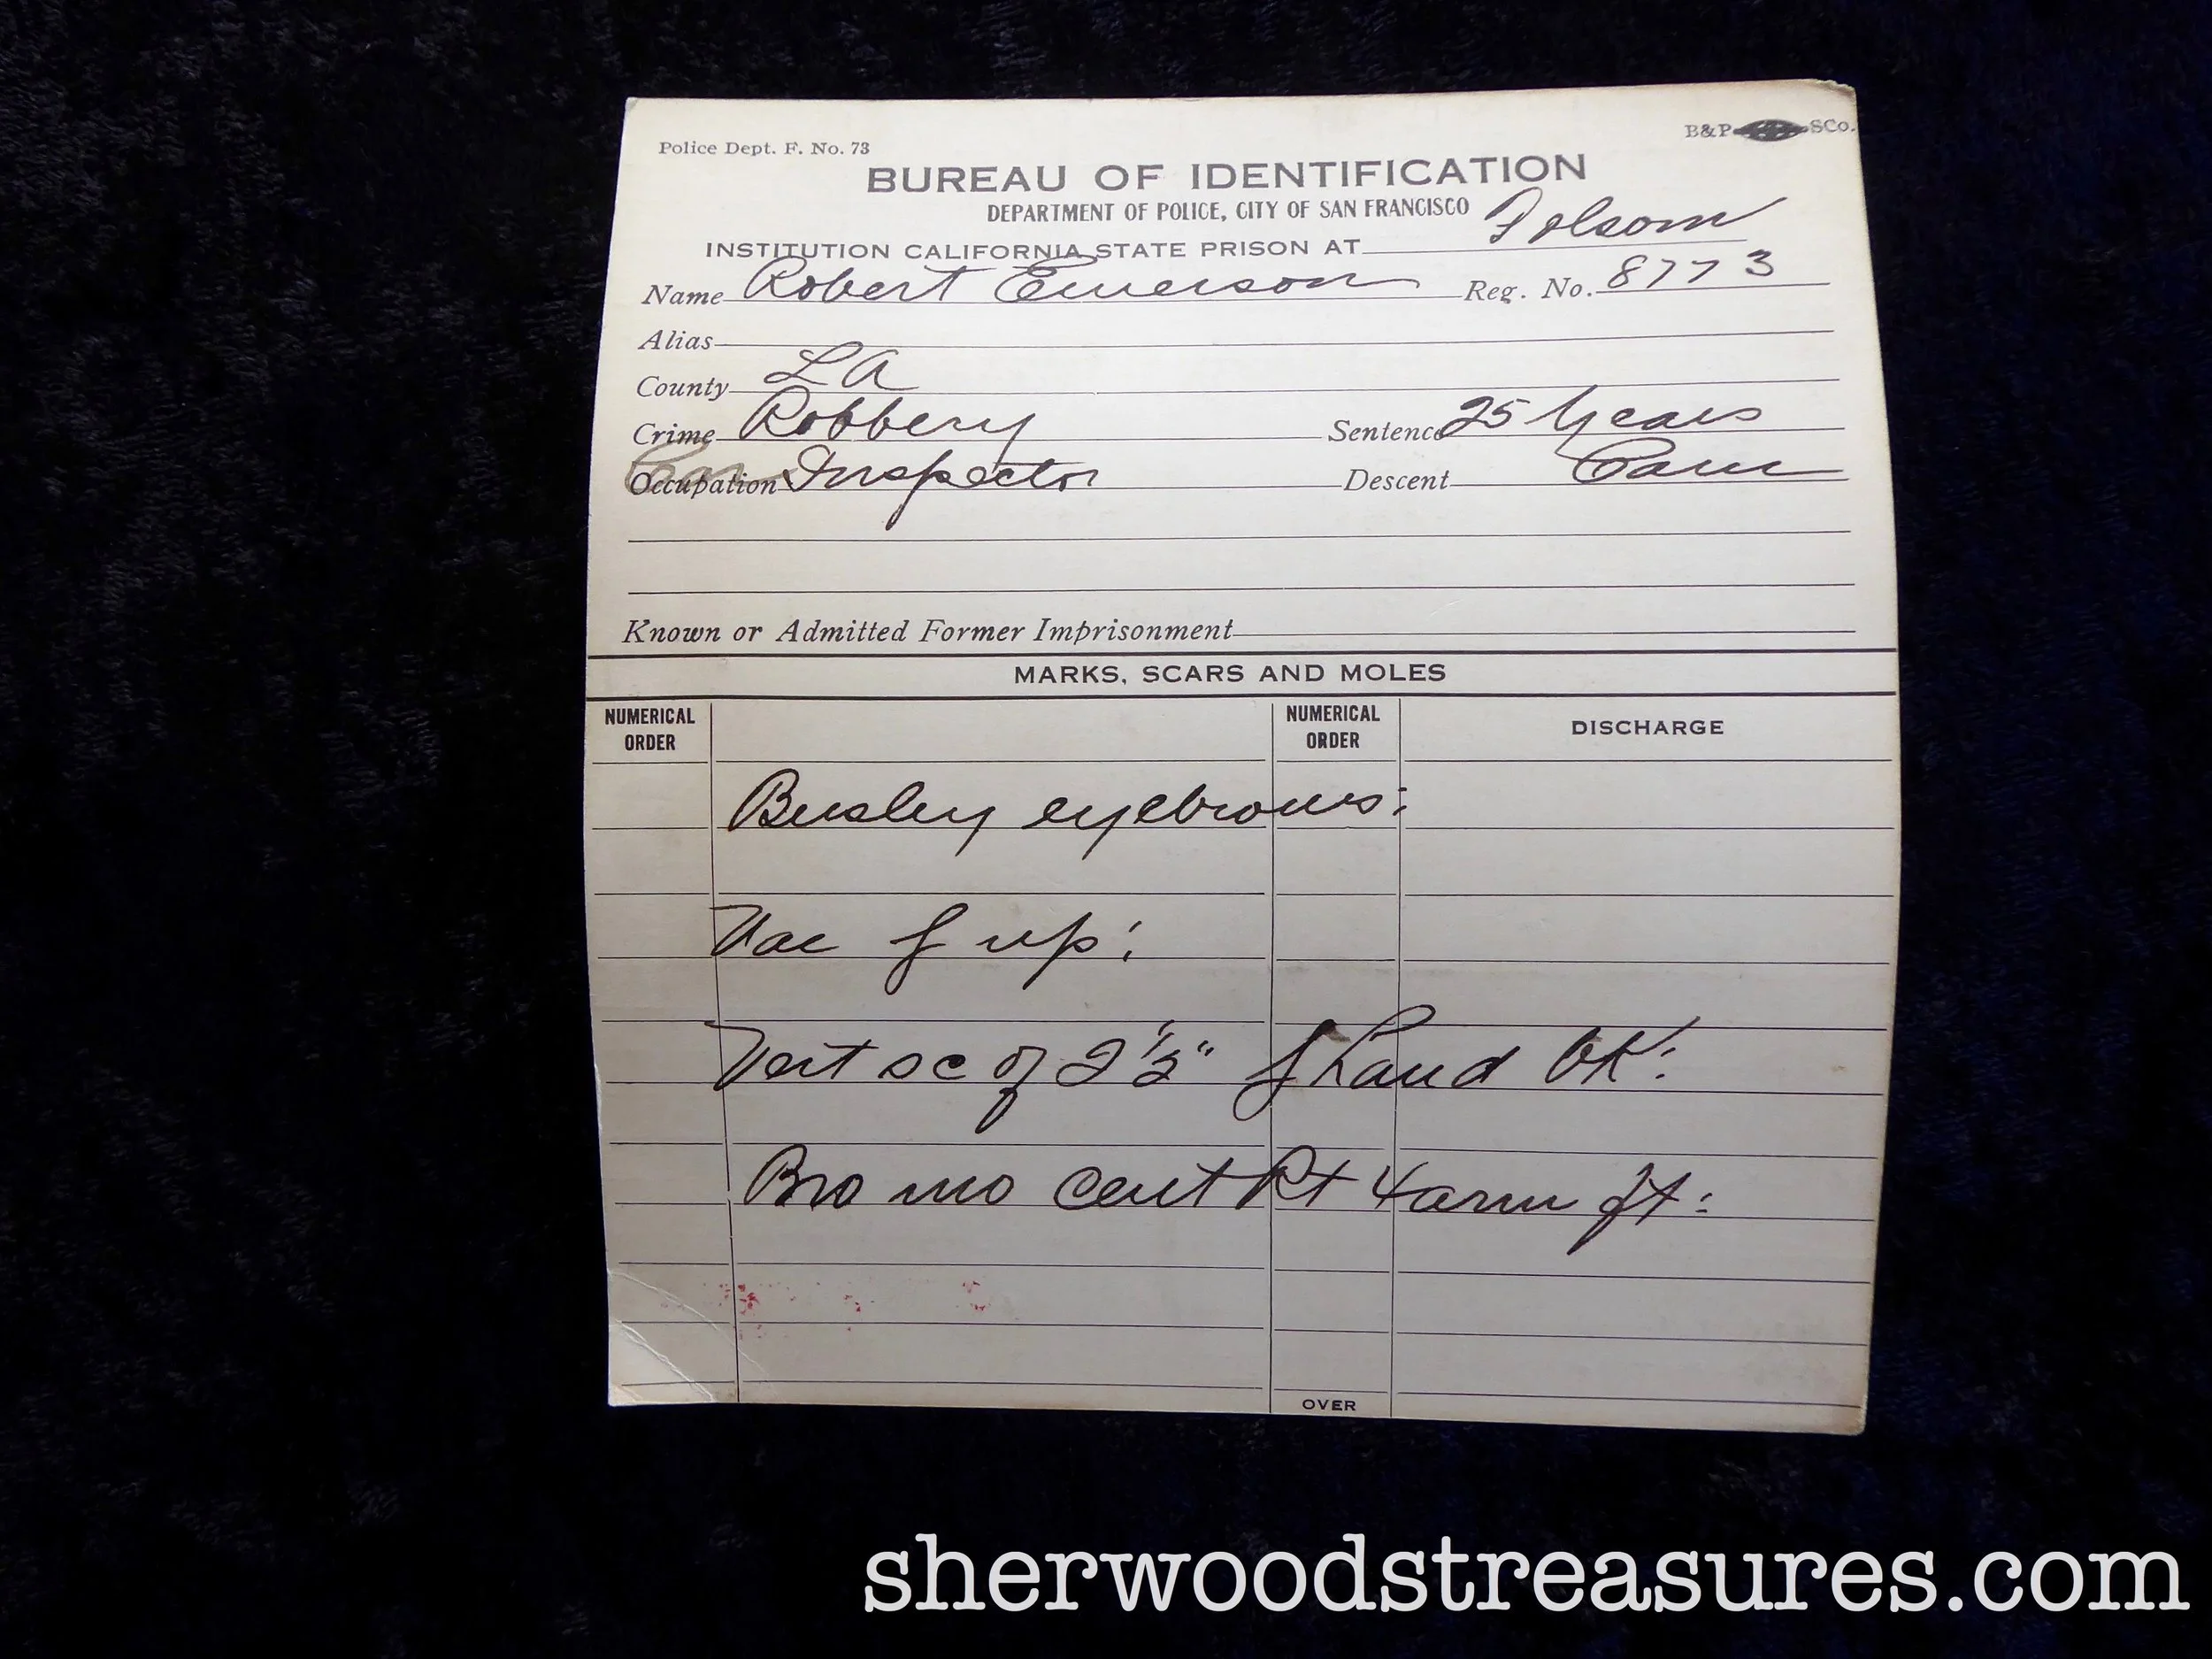 Police Dept. F. No. 73
B&P SCo.
BUREAU OF IDENTIFICATION
DEPARTMENT OF POLICE, CITY OF SAN FRANCISCO
INSTITUTION CALIFORNIA STATE PRISON AT Folsom
Name Robert Emerson Reg. No. 8773
Alias
County LA
Crime Robbery Sentence 25 Years
Occupation Inspector Descent
Known or Admitted Former Imprisonment
MARKS, SCARS AND MOLES
NUMERICAL ORDER NUMERICAL ORDER DISCHARGE
Bushy eyebrows:
Vac f up:
Vert sc of 2 1/2" f hand BK:
Bro mo cent Rt 4arm ft:
OVER
sherwoodstreasures.com